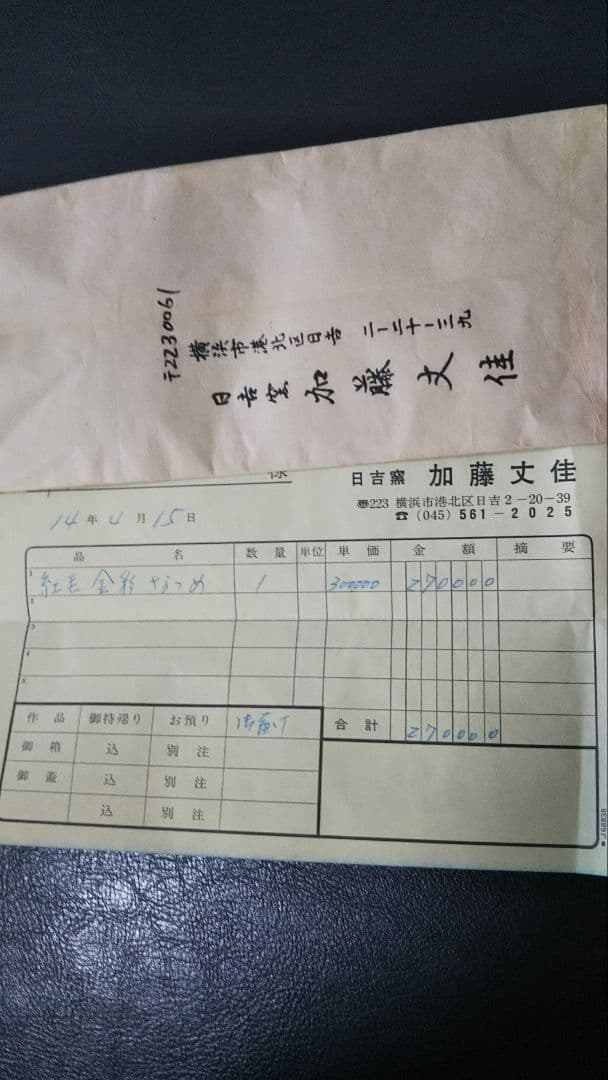 〒2230061
横浜市港北区日吉 二ー二十ー三九
日吉窯 加藤丈佳
様
日吉窯 加藤丈佳
〠223 横浜市港北区日吉2-20-39
☎(045)561-2025
14年4月15日
品名 数量 単位 単価 金額 摘要
1 紅毛金彩なつめ 1 300000 270000
2
3
4
5
作品 御持帰り お預り 合計 270000
御箱 込 別注
御蓋 込 別注
込 別注